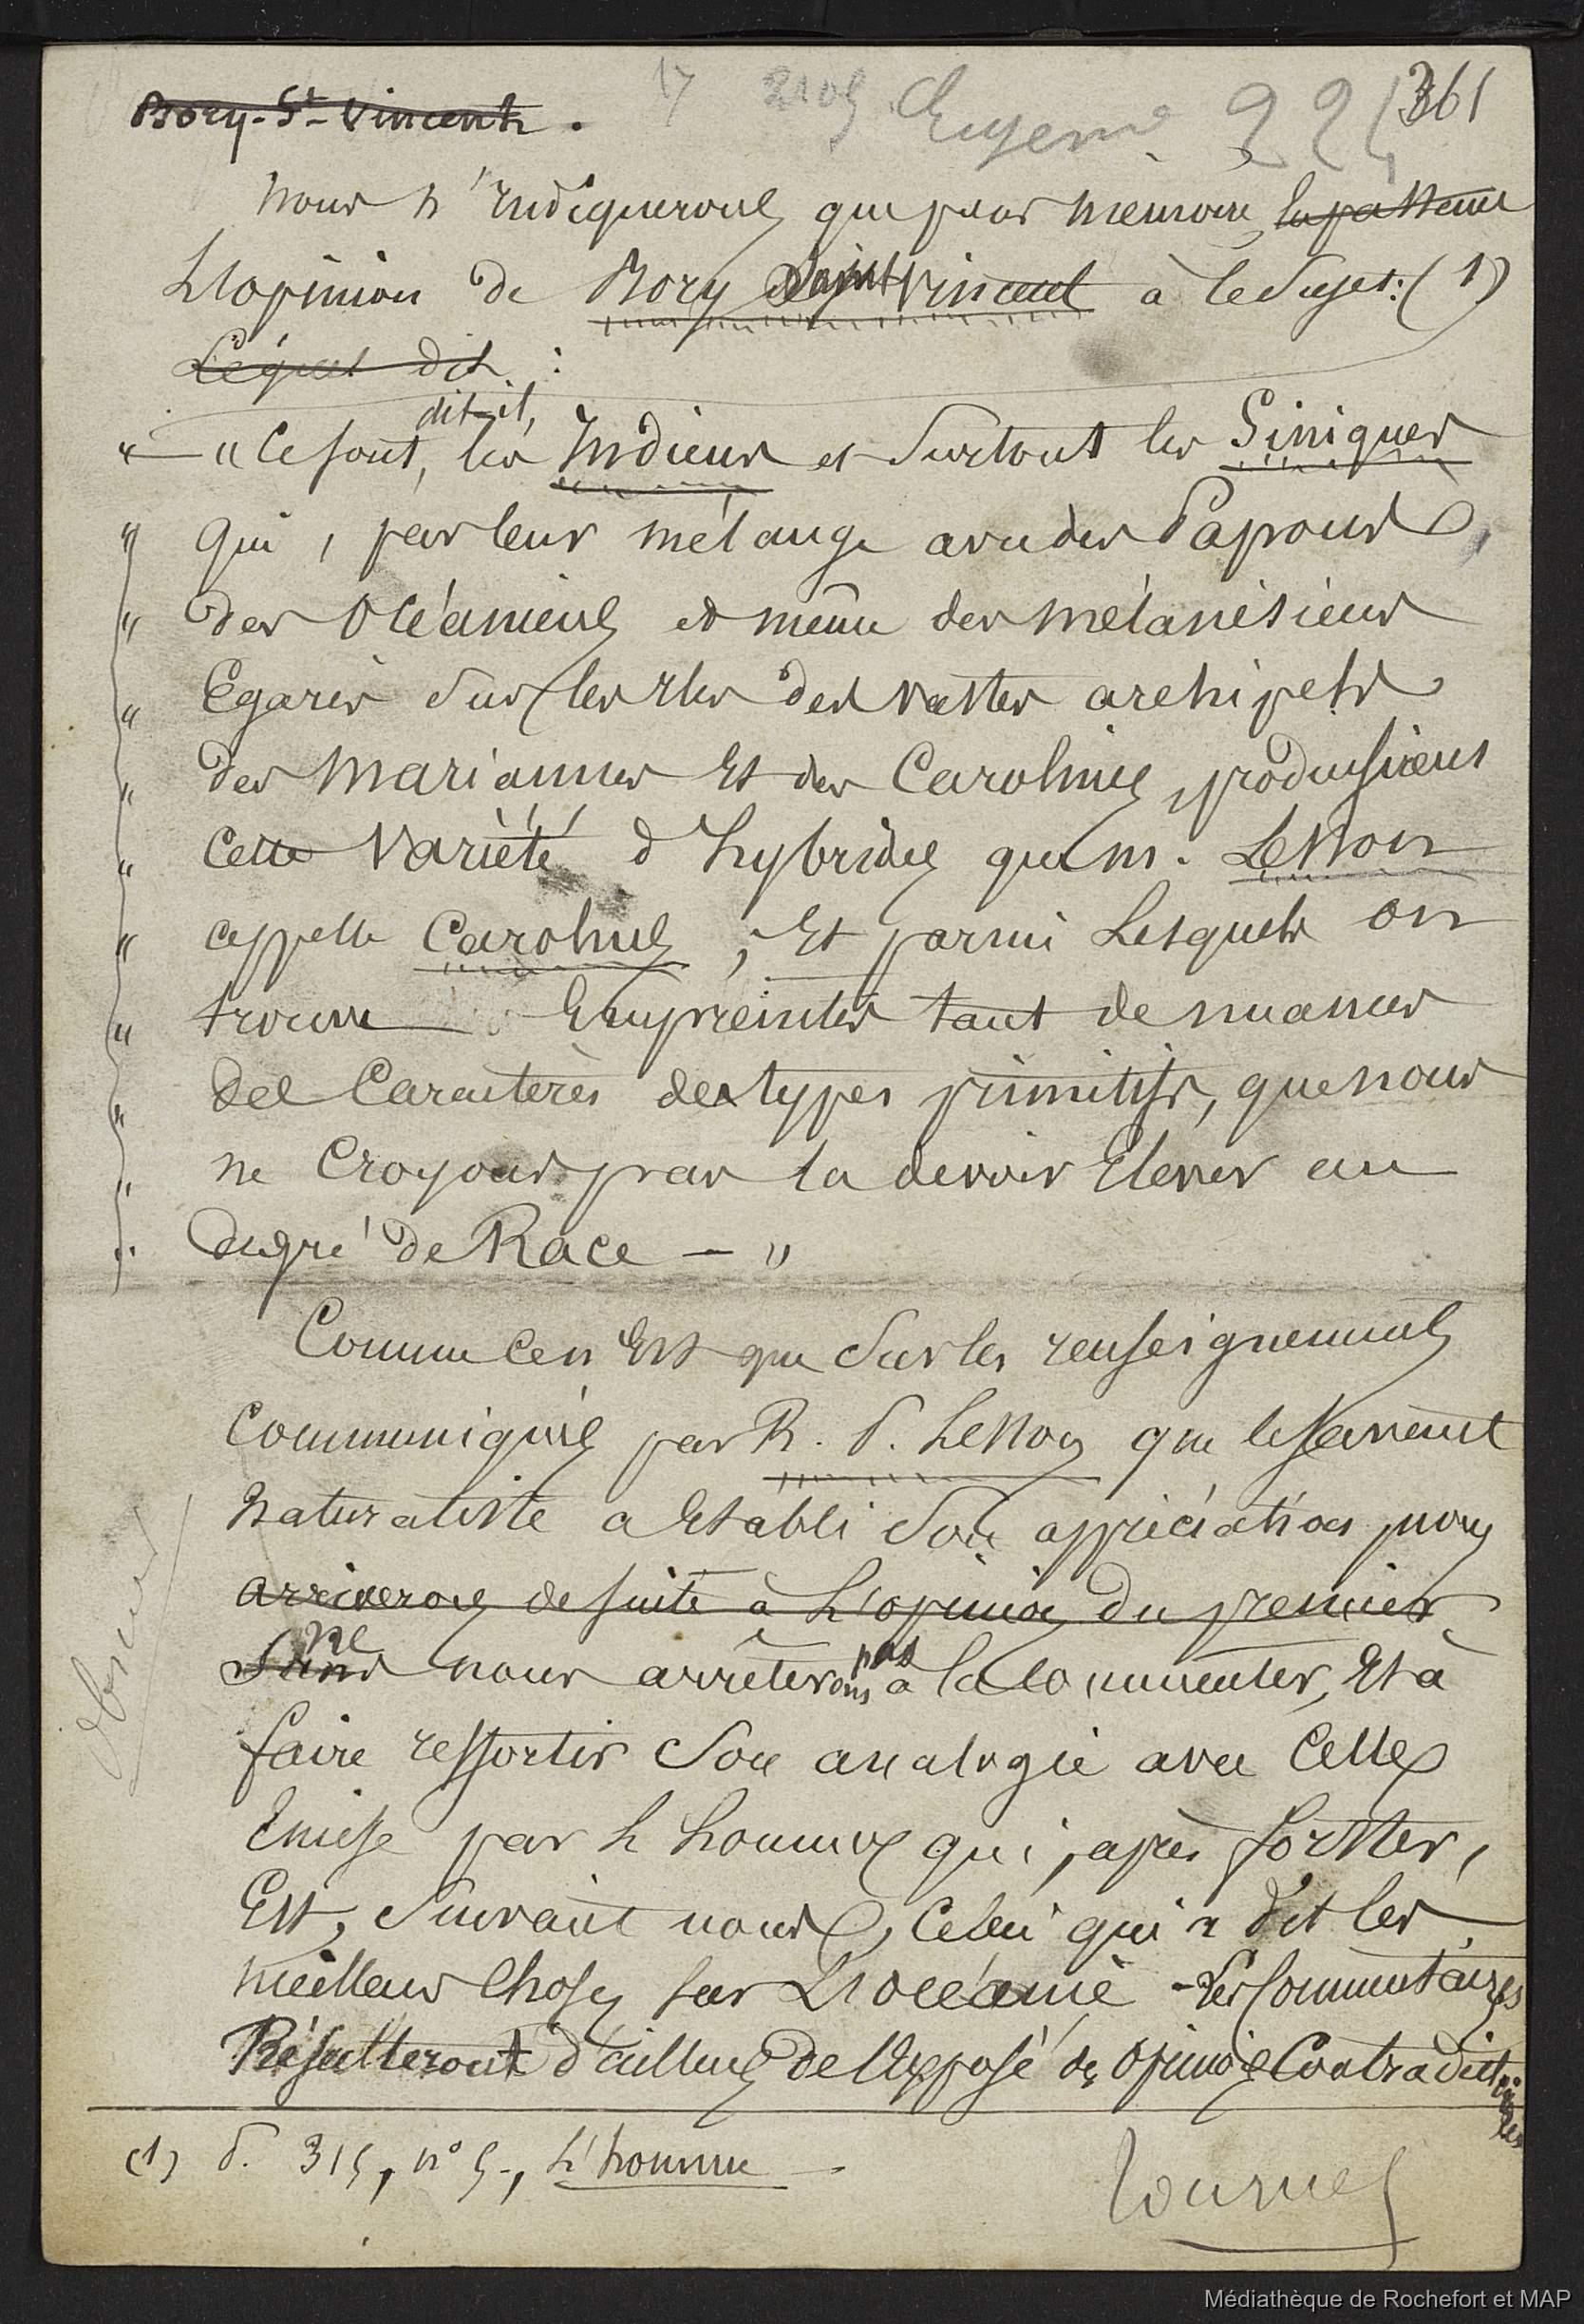 17 2105 Eugenie 224 361
Bory-St-Vincent.
Nous n'indiquerons que pour mémoire
L'opinion de Bory Saint Vincent à ce sujet: (1)
Lequel dit :
dit-il,
"— "ce sont, les Indiens et surtout les Siniques
" qui, par leur mélange avec des Papous,
" des Océaniens et même des mélanésiens
" Egarés sur les Iles des vastes archipels
" des Mariannes Et des Carolines, produisirent
" cette variété d'hybrides que M. Lesson
" appelle Carolins ; Et parmi Lesquels on
" trouve Empreintes tant de nuances
" des Caractères des types primitifs, que nous
" ne Croyons pas la devoir Elever au
" degré de Race — "
Comme ce n'Est que sur les renseignements
Communiqués par R. P. Lesson que le savant
naturaliste a Etabli son appréciation, nous
arriverons de suite à L'opinion du premier
ne
Sans nous arrêterons pas à la commenter, Et à
faire ressortir son analogie avec Celle
Emise par l'homme qui, après Forster,
Est, suivant nous, Celui qui a dit les
meilleures choses sur L'océanie - Les Commentaires
Résulteront d'ailleurs de l'Exposé des opinions Contradictoires
obscur
(1) P. 315, n° 5., L'homme —
tournez